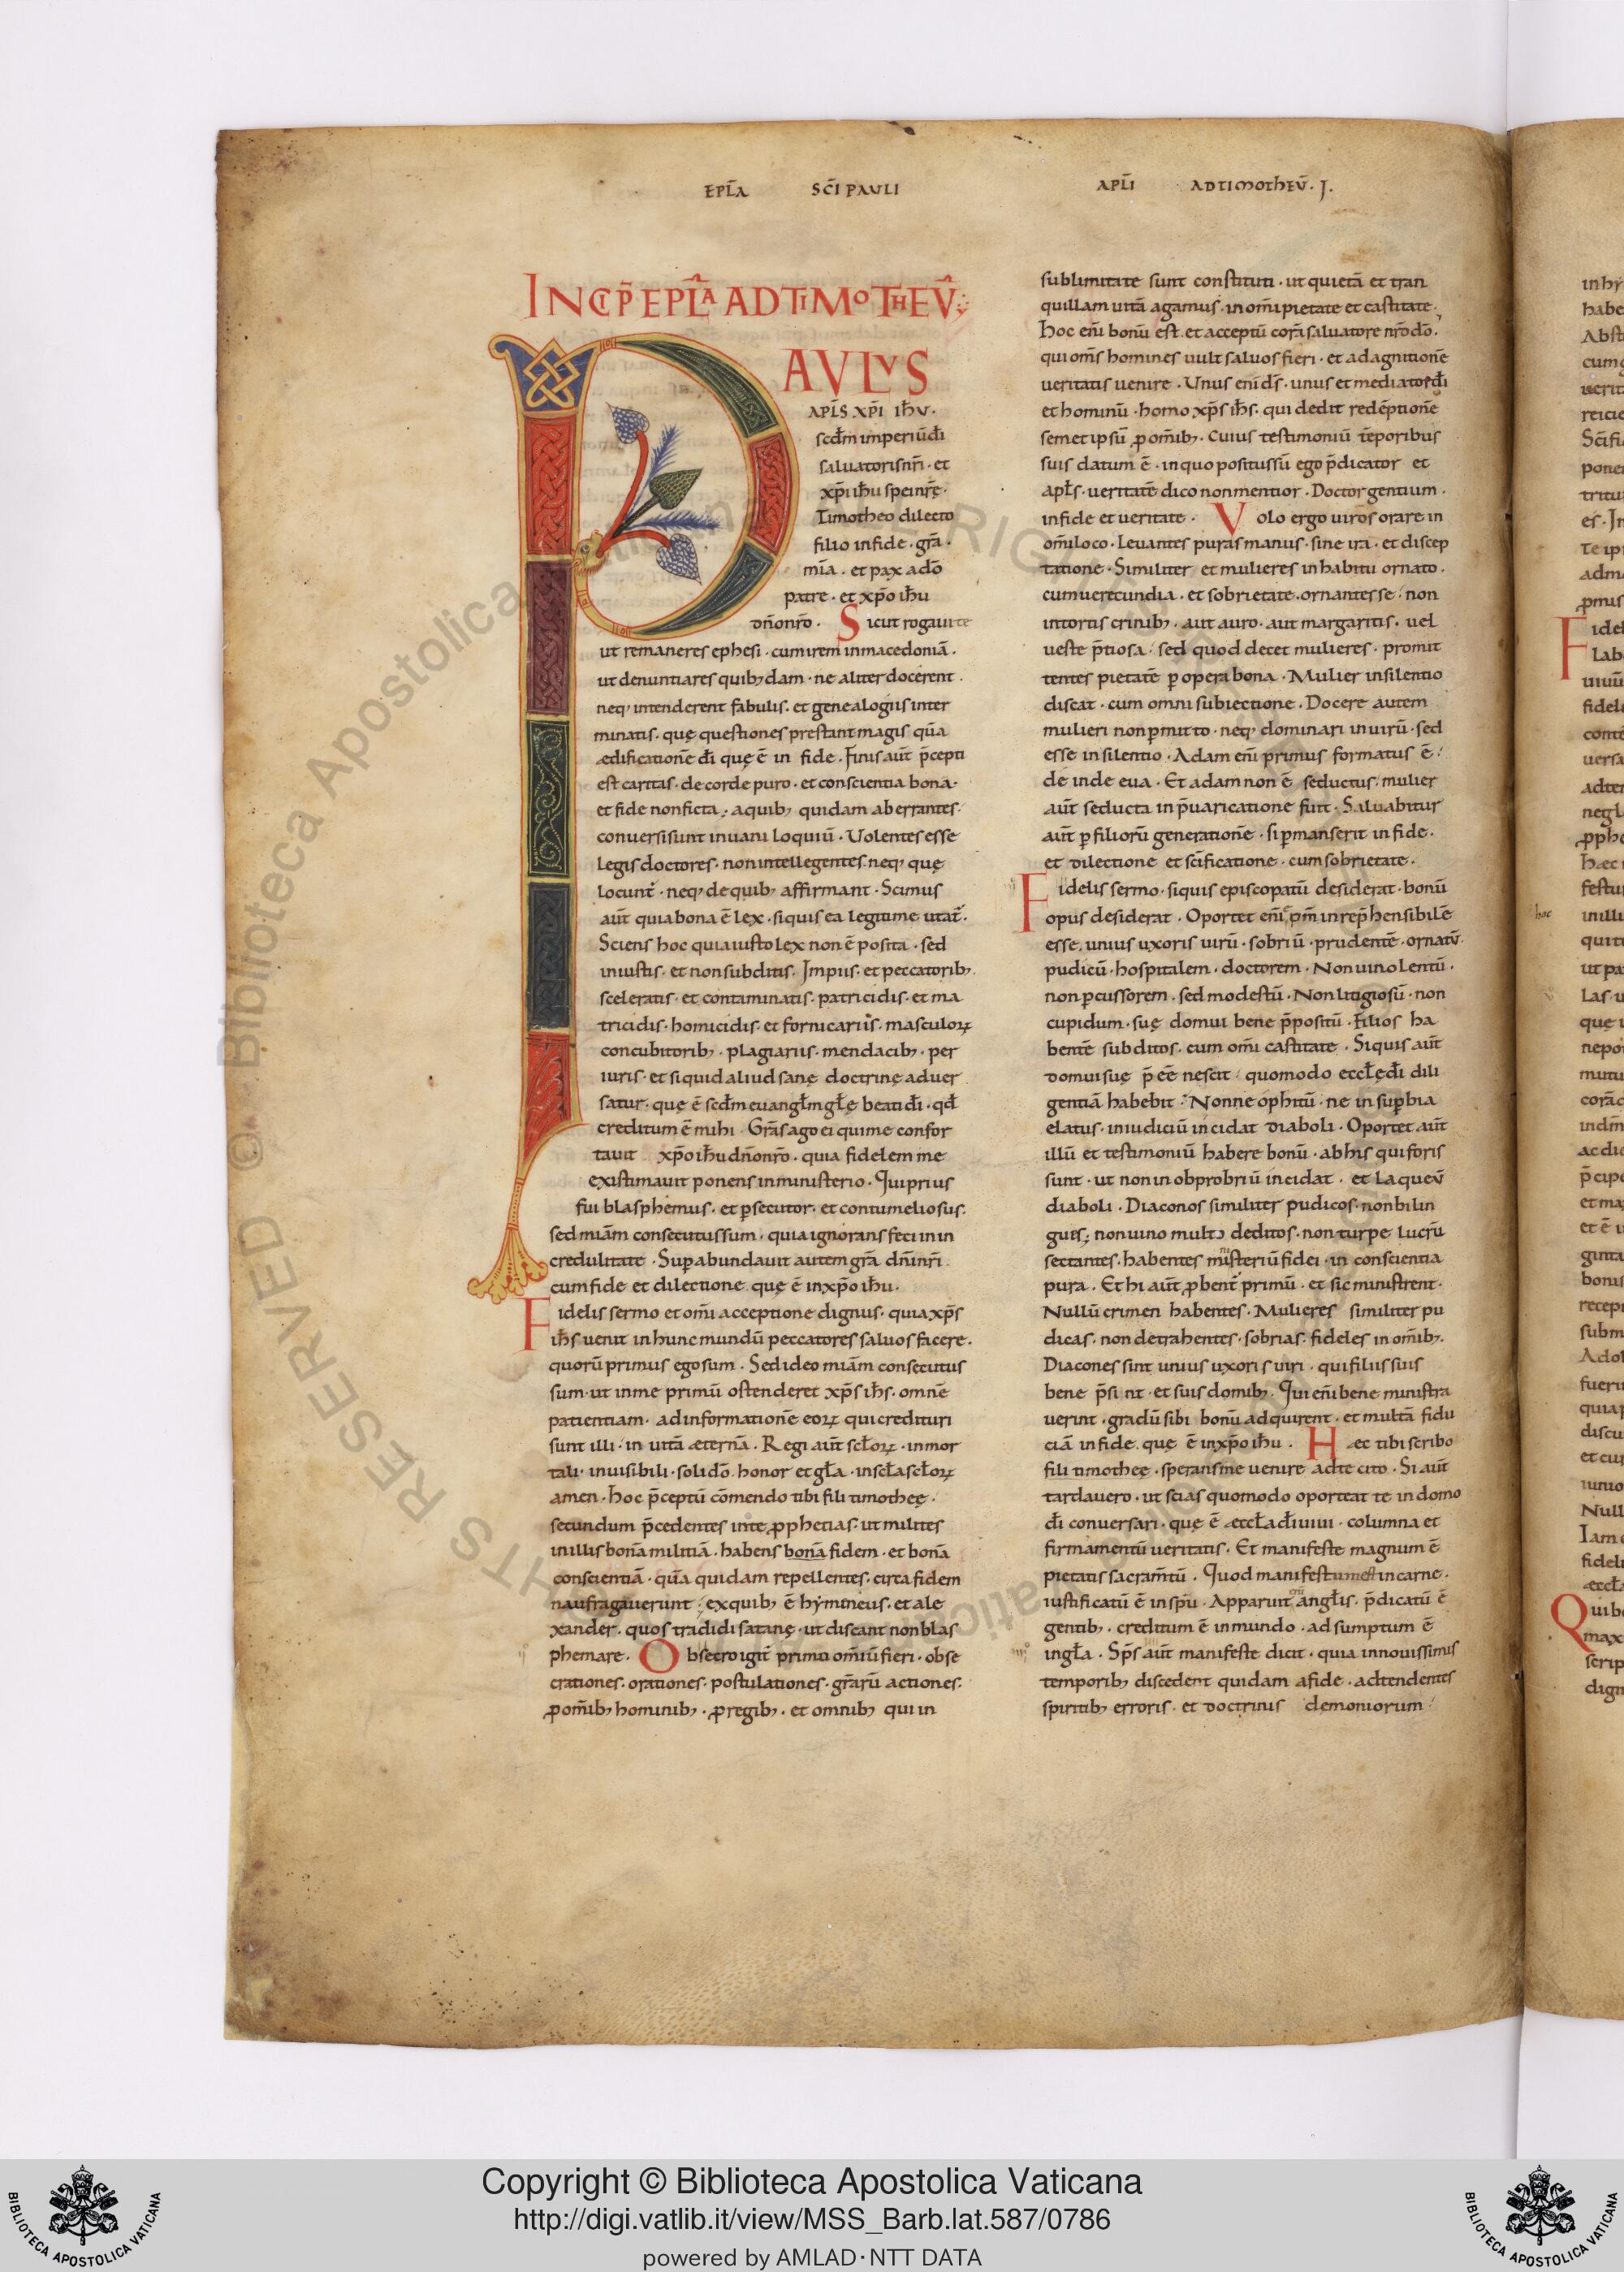 EPL̄A SC̄I PAULI APL̄I AD TIMOTHEŪ. I.
INCIP̄ EPL̄A AD TIMOTHEV̄;
PAVLVS
APL̄S XP̄I IH̄V·
scd̄m imperiū dī
saluatoris nr̄i· et
xp̄i ih̄u spei nr̄ę·
Timotheo dilecto
filio in fide· gr̄a·
mīa· et pax a dō
patre· et xp̄o ih̄u
dn̄o nr̄o· Sicut rogaui te
ut remaneres ephesi· cum irem in macedoniā·
ut denuntiares quibꝫdam· ne aliter docerent·
neqꝫ intenderent fabulis· et genealogiis inter
minatis· quę questiones prestant magis quā
ædificationē dī quę ē in fide· Finis aūt p̄cepti
est caritas· de corde puro· et conscientia bona·
et fide non ficta; a quibꝫ quidam aberrantes·
conuersi sunt in uaniloquiū· Volentes esse
legis doctores· non intellegentes neqꝫ quę
locunt̄· neqꝫ de quibꝫ affirmant· Scimus
aūt quia bona ē lex· si quis ea legitime utat̄·
Sciens hoc quia iusto lex non ē posita· sed
iniustis· et non subditis· Impiis· et peccatoribꝫ·
sceleratis· et contaminatis· patricidis· et ma
tricidis· homicidis· et fornicariis· masculoꝝ
concubitoribꝫ· plagiariis· mendacibꝫ· per
iuris· et si quid aliud sanę doctrinę aduer
satur· quę ē scd̄m euangl̄m gl̄ę beati dī· qd̄
creditum ē mihi· Gr̄as ago ei qui me confor
tauit xp̄o ih̄u dn̄o nr̄o· quia fidelem me
existimauit ponens in ministerio· Qui prius
fui blasphemus· et ꝑsecutor· et contumeliosus·
sed miām consecutus sum· quia ignorans feci in in
credulitate· Suꝑabundauit autem gr̄a dn̄i nr̄i
cum fide et dilectione quę ē in xp̄o ih̄u·
Fidelis sermo et om̄i acceptione dignus· quia xp̄s
ih̄s uenit in hunc mundū peccatores saluos facere·
quorū primus ego sum· Sed ideo miām consecutus
sum· ut in me primū ostenderet xp̄s ih̄s· omnē
patientiam· ad informationē eoꝝ qui credituri
sunt illi· in uitā æternā· Regi aūt scl̄oꝝ· inmor
tali· inuisibili· soli dō· honor et gl̄a· in scl̄a scl̄oꝝ
amen· Hoc p̄ceptū cōmendo tibi fili timotheę·
secundum p̄cedentes in te ꝓphetias· ut milites
in illis bonā militiā· habens bonā fidem· et bonā
conscientiā· quā quidam repellentes· circa fidem
naufragauerunt; ex quibꝫ ē hymineus· et ale
xander· quos tradidi satanę· ut discant non blas
phemare· Obsecro igit̄ primo om̄iū fieri· obse
crationes· orationes· postulationes· gr̄arū actiones·
ꝓ om̄ibꝫ hominibꝫ· ꝓ regibꝫ· et omnibꝫ qui in
sublimitate sunt constituti· ut quietā et tran
quillam uitā agamus· in om̄i pietate et castitate·
Hoc eni̅ bonū est· et acceptū corā saluatore nr̄o dō·
qui om̄s homines uult saluos fieri· et ad agnitionē
ueritatis uenire· Unus eni̅ ds̄· unus et mediator dī
et hominū· homo xp̄s ih̄s· qui dedit redēptionē
semet ipsū ꝓ om̄ibꝫ· Cuius testimoniū tēporibus
suis datum ē· in quo positus sū ego p̄dicator et
apl̄s· ueritatē dico non mentior· Doctor gentium·
in fide et ueritate· Volo ergo uiros orare in
om̄i loco· Leuantes puras manus· sine ira· et discep
tatione· Similiter et mulieres in habitu ornato·
cum uerecundia· et sobrietate· ornantes se· non
intortis crinibꝫ· aut auro· aut margaritis· uel
ueste p̄tiosa· sed quod decet mulieres· promit
tentes pietatē ꝑ opera bona· Mulier in silentio
discat· cum omni subiectione· Docere autem
mulieri non ꝑmitto· neqꝫ dominari in uirū· sed
esse in silentio· Adam eni̅ primus formatus ē·
deinde eua· Et adam non ē seductus· mulier
aūt seducta in p̄uaricatione fuit· Saluabitur
aūt ꝑ filiorū generationē· si ꝑmanserit in fide·
et dilectione et sc̄ificatione· cum sobrietate·
Fidelis sermo· si quis episcopatū desiderat· bonū
opus desiderat· Oportet eni̅ ep̄m inrep̄hensibilē
esse· unius uxoris uirū· sobriū· prudentē· ornatū·
pudicū· hospitalem· doctorem· Non uinolentū·
non ꝑcussorem· sed modestū· Non litigiosū· non
cupidum· suę domui bene p̄positū· Filios ha
bentē subditos· cum om̄i castitate· Si quis aūt
domui suę p̄ēē nescit· quomodo eccl̄ę dī dili
gentiā habebit· Non neophitū· ne in suꝑbia
elatus· in iudiciū incidat diaboli· Oportet aūt
illū et testimoniū habere bonū· ab his qui foris
sunt· ut non in obprobriū incidat· et laqueū
diaboli· Diaconos similiter pudicos· non bilin
gues; non uino multo deditos· non turpe lucrū
sectantes· habentes misteriū fidei· in conscientia
pura· Et hi aūt ꝓbent̄ primū· et sic ministrent·
Nullū crimen habentes· Mulieres similiter pu
dicas· non detrahentes· sobrias· fideles in om̄ibꝫ·
Diacones sint unius uxoris uiri· qui filiis suis
bene p̄sint· et suis domibꝫ· Qui eni̅ bene ministra
uerint· gradū sibi bonū adquirent· et multā fidu
ciā in fide quę ē in xp̄o ih̄u· Hæc tibi scribo
fili timotheę· sperans me uenire ad te cito· Si aūt
tardauero· ut scias quomodo oporteat te in domo
dī conuersari· quę ē æccl̄a dī uiui· columna et
firmamentū ueritatis· Et manifeste magnum ē
pietatis sacram̄tū· Quod manifestum est in carne·
iustificatū ē in sp̄u· Apparuit angl̄is· p̄dicatū ē
gentibꝫ· creditum ē in mundo· adsumptum ē
in gl̄a· Sp̄s aūt manifeste dicit· quia in nouissimis
temporibꝫ discedent quidam a fide· adtendentes
spiritibꝫ erroris· et doctrinis demoniorum·
hoc
Copyright © Biblioteca Apostolica Vaticana
http://digi.vatlib.it/view/MSS_Barb.lat.587/0786
powered by AMLAD·NTT DATA
BIBLIOTECA APOSTOLICA VATICANA
BIBLIOTECA APOSTOLICA VATICANA